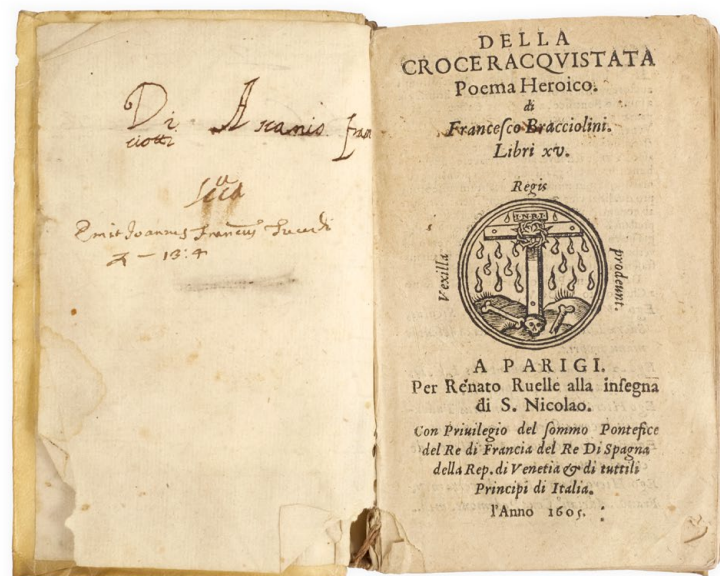 Di Ascanio Fran
ciotti
Emit Joannes Franciscus
DELLA
CROCE RACQVISTATA
Poema Heroico.
di
Francesco Bracciolini.
Libri xv.
Regis
INRI
Vexilla
prodeunt.
A PARIGI.
Per Renato Ruelle alla insegna
di S. Nicolao.
Con Priuilegio del sommo Pontefice
del Re di Francia del Re Di Spagna
della Rep. di Venetia & di tuttili
Principi di Italia.
l'Anno 1605.